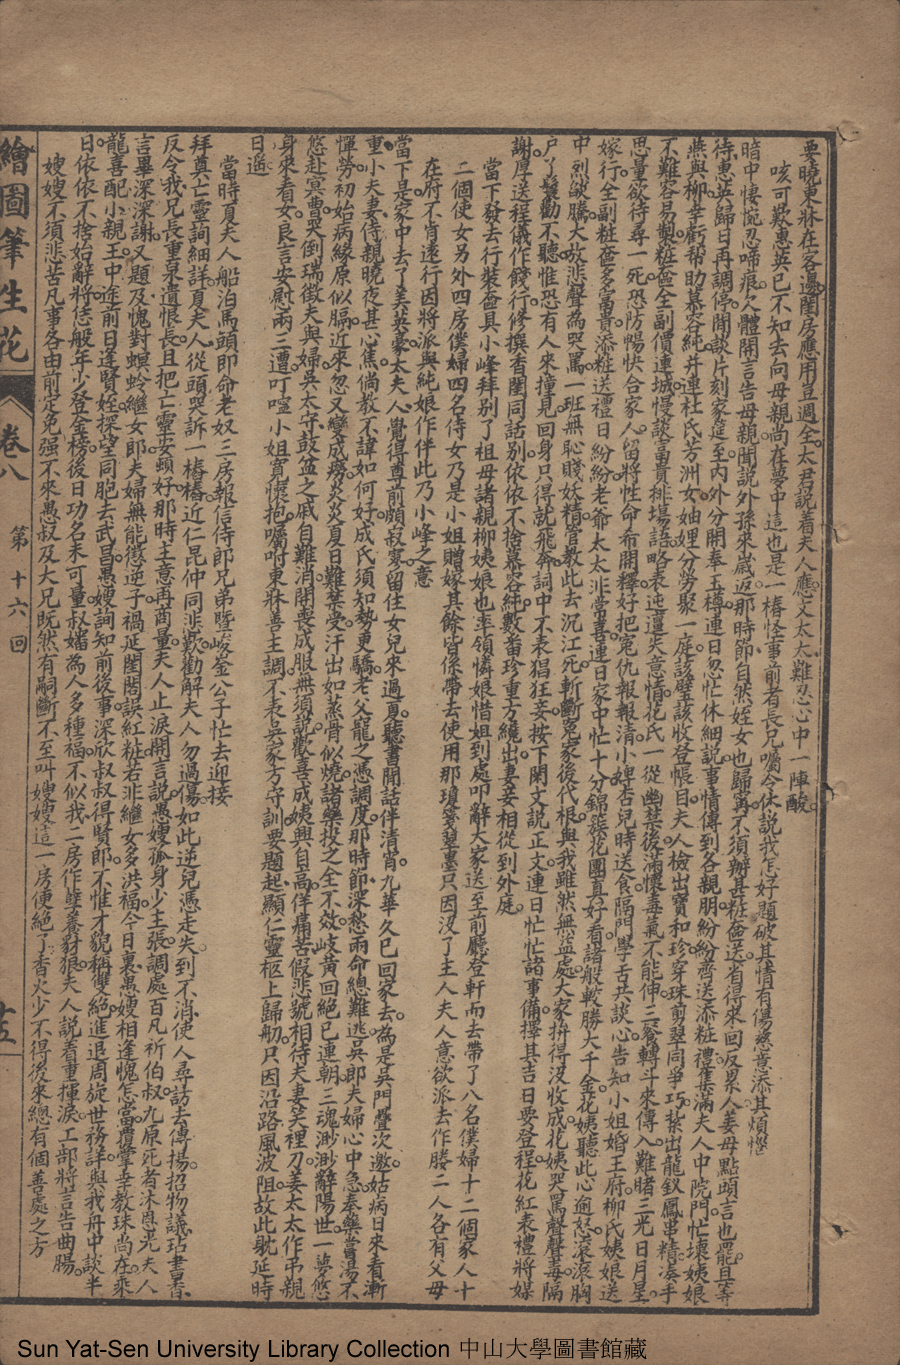 要曉東牀在客邊閨房應用豈週全太君説着夫人應文太太難忍心中一陣酸
咳可歎惠英已不知去向母親尚在夢中這也是一樁怪事前者長兄囑令休説我怎好題破其情有傷慈意添其煩惱
暗中悽惋忍啼痕欠體開言告母親聞説外孫來歲返那時節自然姪女也歸寗不須辦甚粧奩送省得來回反累人姜母點頭言也罷且等
待惠英歸日再調停閒談片刻家筵至内外分開奉玉樽連日怱忙休細説事情傳到各親朋紛紛齎送添粧禮集滿夫人中院門忙壞姨娘
燕與柳幸虧幫助慕容純并連杜氏芳洲女妯娌分勞聚一庭該璧該收登帳目夫人檢出寶和珍穿珠剪翠同爭巧紮出龍釵鳳串精湊手
不難容易製粧奩全副價連城慢談富貴排塲語略表迍邅失意情花氏一從幽禁後滿懷毒氣不能伸三餐轉斗來傳入難睹三光日月星
思量欲待尋一死恐防暢快合家人留將性命布開釋好把寃仇報報清小婢杏兒時送食隔門學舌共談心告知小姐婚王府柳氏姨娘送
嫁行全副粧奩多富貴添粧送禮日紛紛老爺太太非常喜連日家中忙十分錦簇花團真好看諸般較勝大千金花姨聽此心逾怒滾滾胸
中烈燄騰大放悲聲為哭罵一班無恥賤妖精當教此去沉江死斬斷寃家後代根與我雖然無益處大家拚得没收成花姨哭罵聲聲毒隔
户丫鬟勸不聽惟恐有人來撞見回身只得就飛奔詞中不表猖狂妾按下閑文説正文連日忙忙諸事備擇其吉日要登程花紅表禮將媒
謝厚送程儀作餞行修撰香閨同話别依依不捨慕容純數畨珍重方纔出妻妾相從到外庭
當下發去行裝盦具小峰拜别了祖母諸親柳姨娘也率領憐娘惜姐到處叩辭大家送至前廳登軒而去帶了八名僕婦十二個家人十
二個使女另外四房僕婦四名侍女乃是小姐贈嫁其餘皆係帶去使用那瓊箋翠墨只因没了主人夫人意欲派去作媵二人各有父母
在府不肯遠行因將派與純娘作伴此乃小峰之意
當下是家中去了美英豪太夫人覺得尊前頗寂寥留住女兒來過夏聽書閒話伴清宵九華久已回家去為是吳門疊次邀姑病日來看漸
重小夫妻侍親曉夜甚心焦倘教不諱如何好成氏須知勢更驕老父龍之憑調度那時節深愁兩命總難逃吳郎夫婦心中急奉藥嘗湯不
憚勞初始病緣原似膈近來忽又變成癆炎炎夏日難禁受汗出如蒸骨似燒諸藥投之全不效岐黄回絶已連朝三魂渺渺辭陽世一夢悠
悠赴冥曹哭倒瑞徵夫與婦吳太守鼓盆之戚自難消開喪成服無須説歡喜成姨興自高佯痛苦假悲號相待夫妻笑裡刀姜太太作弔親
身來看女良言安慰兩三遭叮嚀小姐寬懷抱囑咐東牀善主調不表吳家方守訓要題起顯仁靈柩上歸舠只因沿路風波阻故此躭延時
日遥
當時夏夫人船泊馬頭即命老奴三房報信侍郎兄弟曁峻崟公子忙去迎接
拜奠亡靈詢細詳夏夫人從頭哭訴一樁樁近仁昆仲同悲歎勸解夫人勿過傷如此逆兒憑走失到不消使人尋訪去傳揚招物議玷書香
反令我兄長重泉遺恨長且把亡靈安頓好那時主意再商量夫人止淚開言説愚嫂孤身少主張調處百凡祈伯叔九原死者沐恩光夫人
言畢深深謝又題及愧對螟蛉繼女郎夫婦無能懲逆子禍延閨閤誤紅粧若非繼女多洪福今日裏愚嫂相逢愧怎當覆掌幸教珠尚在乘
龍喜配小親王中途前日逢賢姪探望同胞去武昌愚嫂詢知前後事深欣叔叔得賢郎不惟才貌稱雙絶進退周旋世務詳與我舟中談半
日依依不捨始辭將恁般年少登金榜後日功名未可量叔㜷為人多種福不似我二房作孽養豺狼夫人説着重揮淚工部將言告曲腸
嫂嫂不須悲苦凡事各由前定免强不來愚叔及大兄既然有嗣斷不至叫嫂嫂這一房便絶了香火少不得後來總有個善處之方
繪圖筆生花 卷八 第十六回 十五
Sun Yat-Sen University Library Collection 中山大學圖書館藏